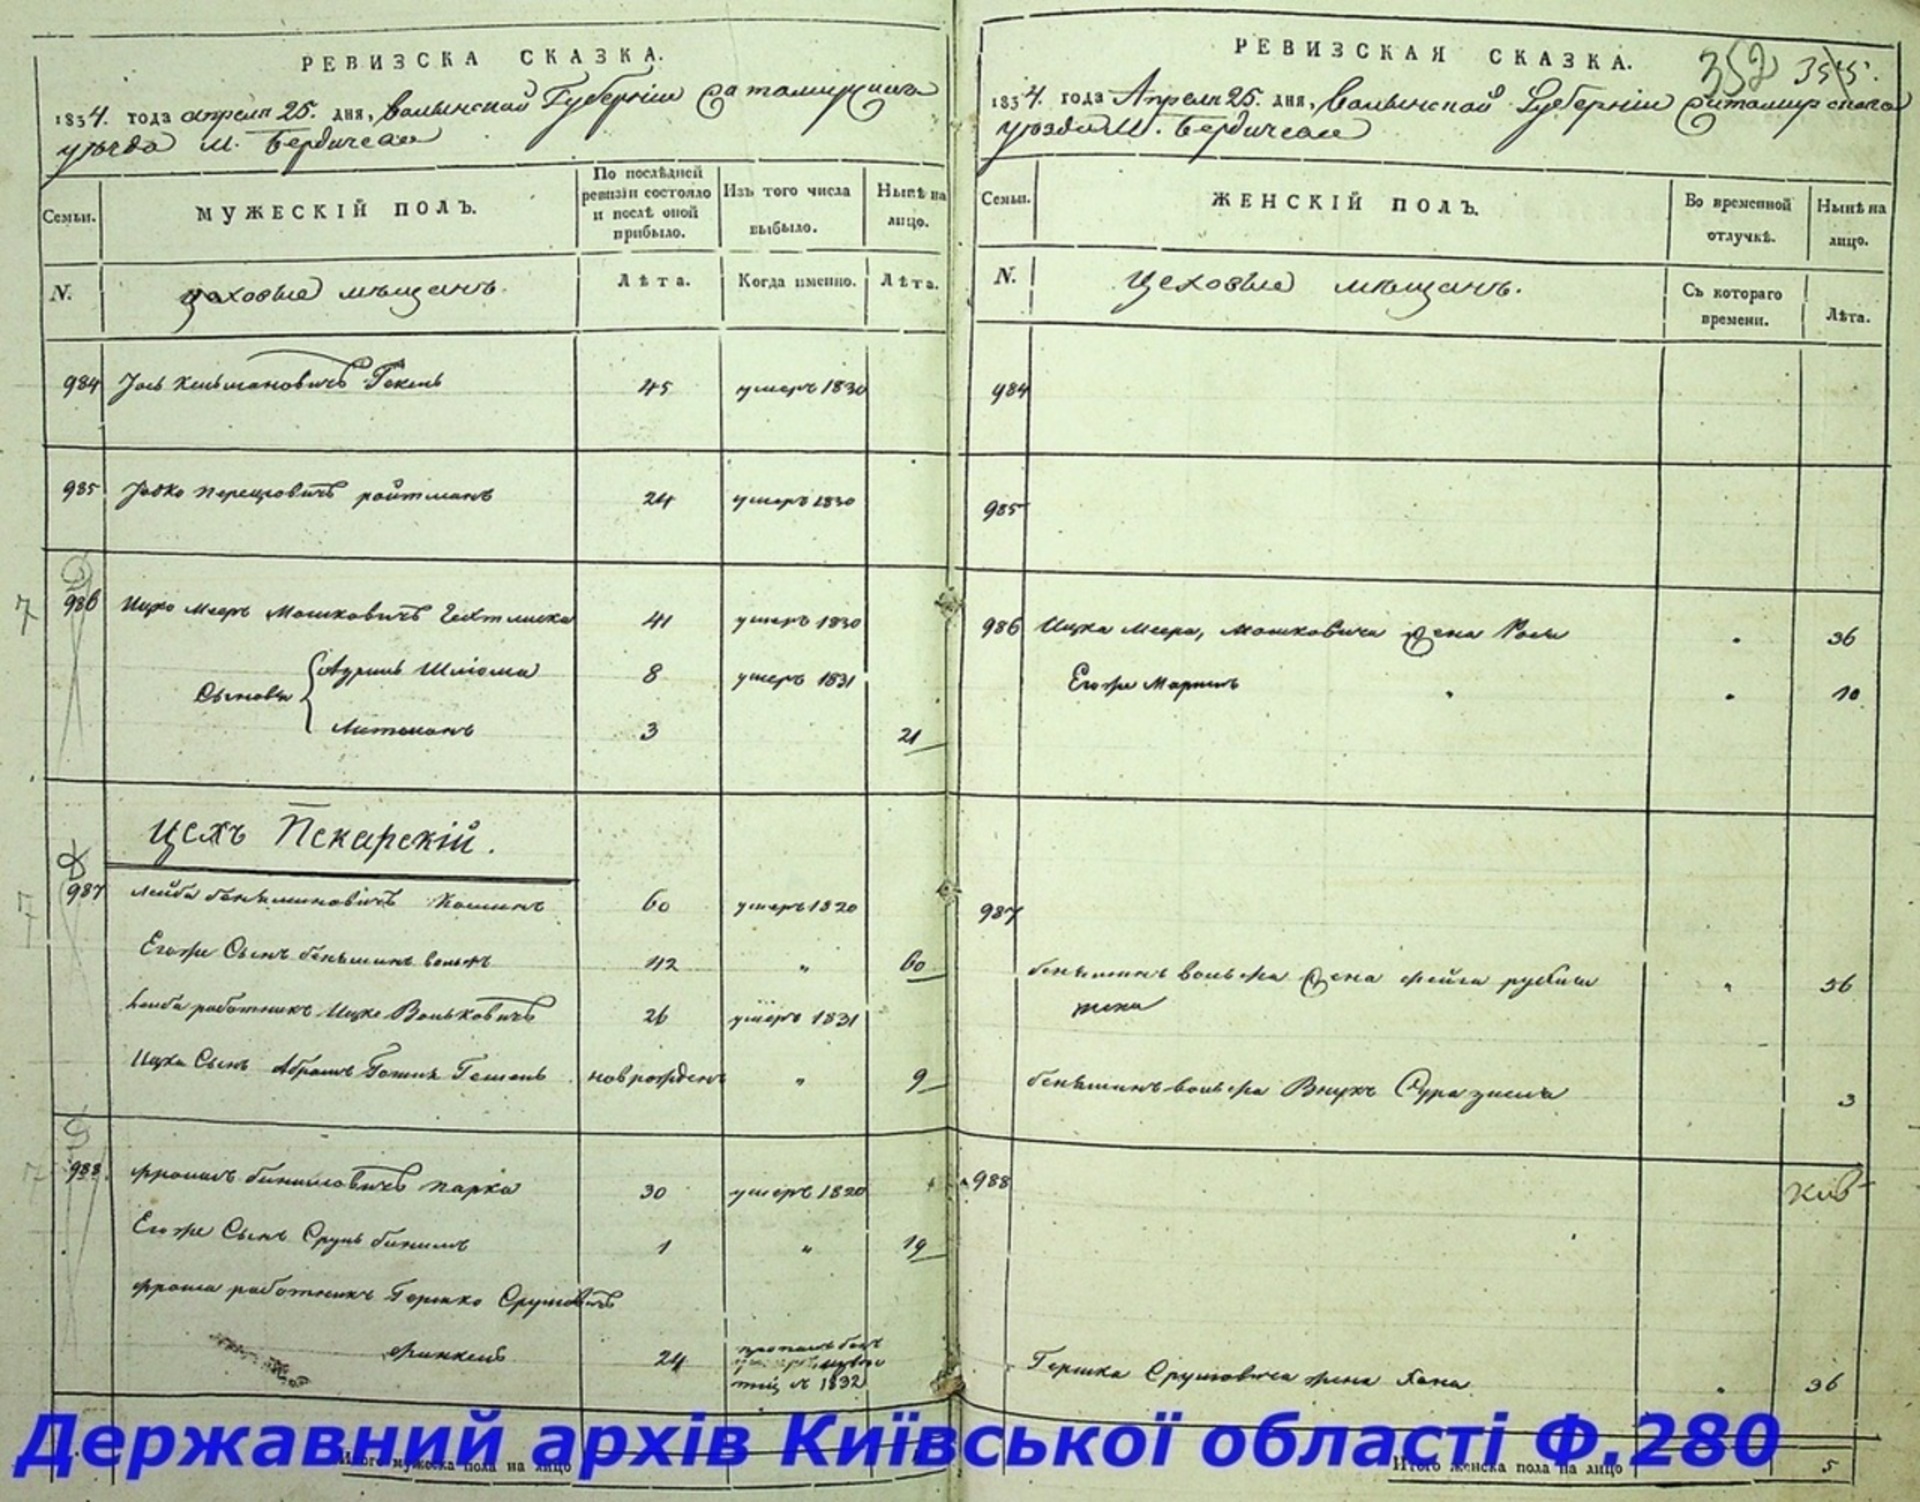 РЕВИЗСКА СКАЗКА.
1834. года апреля 25. дня, Волынской Губерніи Житомирскаго
уѣзда М. Бердичева
Семьи.
МУЖЕСКІЙ ПОЛЪ.
По послѣдней
ревизіи состояло
и послѣ оной
прибыло.
Изъ того числа
выбыло.
Нынѣ на
лицо.
N.
Цеховые мѣщанъ.
Лѣта.
Когда именно.
Лѣта.
984
45
умеръ 1830
985
Перецовичъ ройтманъ
24
умеръ 1830
7
986
Ицко Мееръ Мошковичъ
41
умеръ 1830
Сыновья
Шлiома
8
умеръ 1831
3
21
Цехъ Пекарскій.
7
987
Лейба бенъяминовичъ
60
умеръ 1820
Егоже Сынъ бенъяминъ вольфъ
42
"
60
Лейба работникъ Ицко Вольковичъ
26
умеръ 1831
Ицка Сынъ Абрамъ
новрожденъ
"
9
7
988.
фроимъ парка
30
умеръ 1820
Егоже Сынъ Сруль
1
"
19
фроима работникъ Гершко Срулiовичъ
финкель
24
пропалъ безъ
1832
Итого мужеска пола на лицо
РЕВИЗСКАЯ СКАЗКА.
352 355.
1834. года Апреля 25. дня, Волынской Губерніи Житомирскаго
уѣзда М. Бердичева
Семьи.
ЖЕНСКІЙ ПОЛЪ.
Во временной
отлучкѣ.
Нынѣ на
лицо.
N.
Цеховые мѣщанъ.
Съ котораго
времени.
Лѣта.
984
985
986
Ицка Меера, Мошковича жена
36
Егоже
"
10
987
бенъяминъ вольфа жена фейга
"
36
бенъяминъ вольфа Внукъ
3
988
Гершка Срулiовича жена Хана
36
Итого женска пола на лицо
5
Державний архів Київської області Ф.280